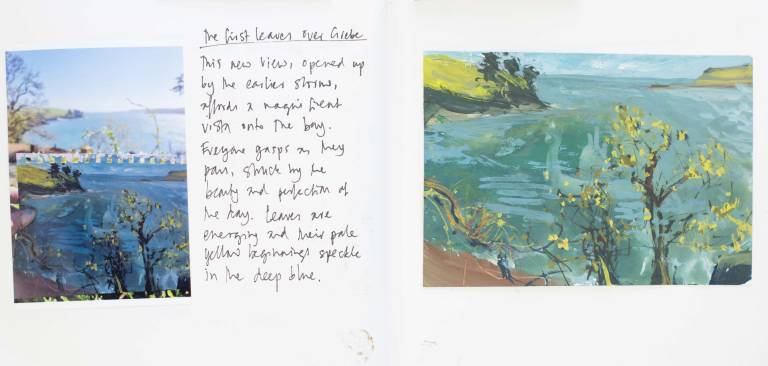 The first leaves over Grebe
This new view, opened up
by the earlier storms,
affords a magnificent
vista onto the bay.
Everyone gasps as they
pass, struck by the
beauty and perfection of
the day. Leaves are
emerging and their pale
yellow beginnings speckle
in the deep blue.